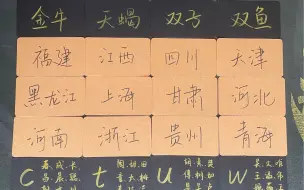 金牛 天蝎 双子 双鱼
福建 江西 四川 天津
黑龙江 上海 甘肃 河北
河南 浙江 贵州 青海
C t U W